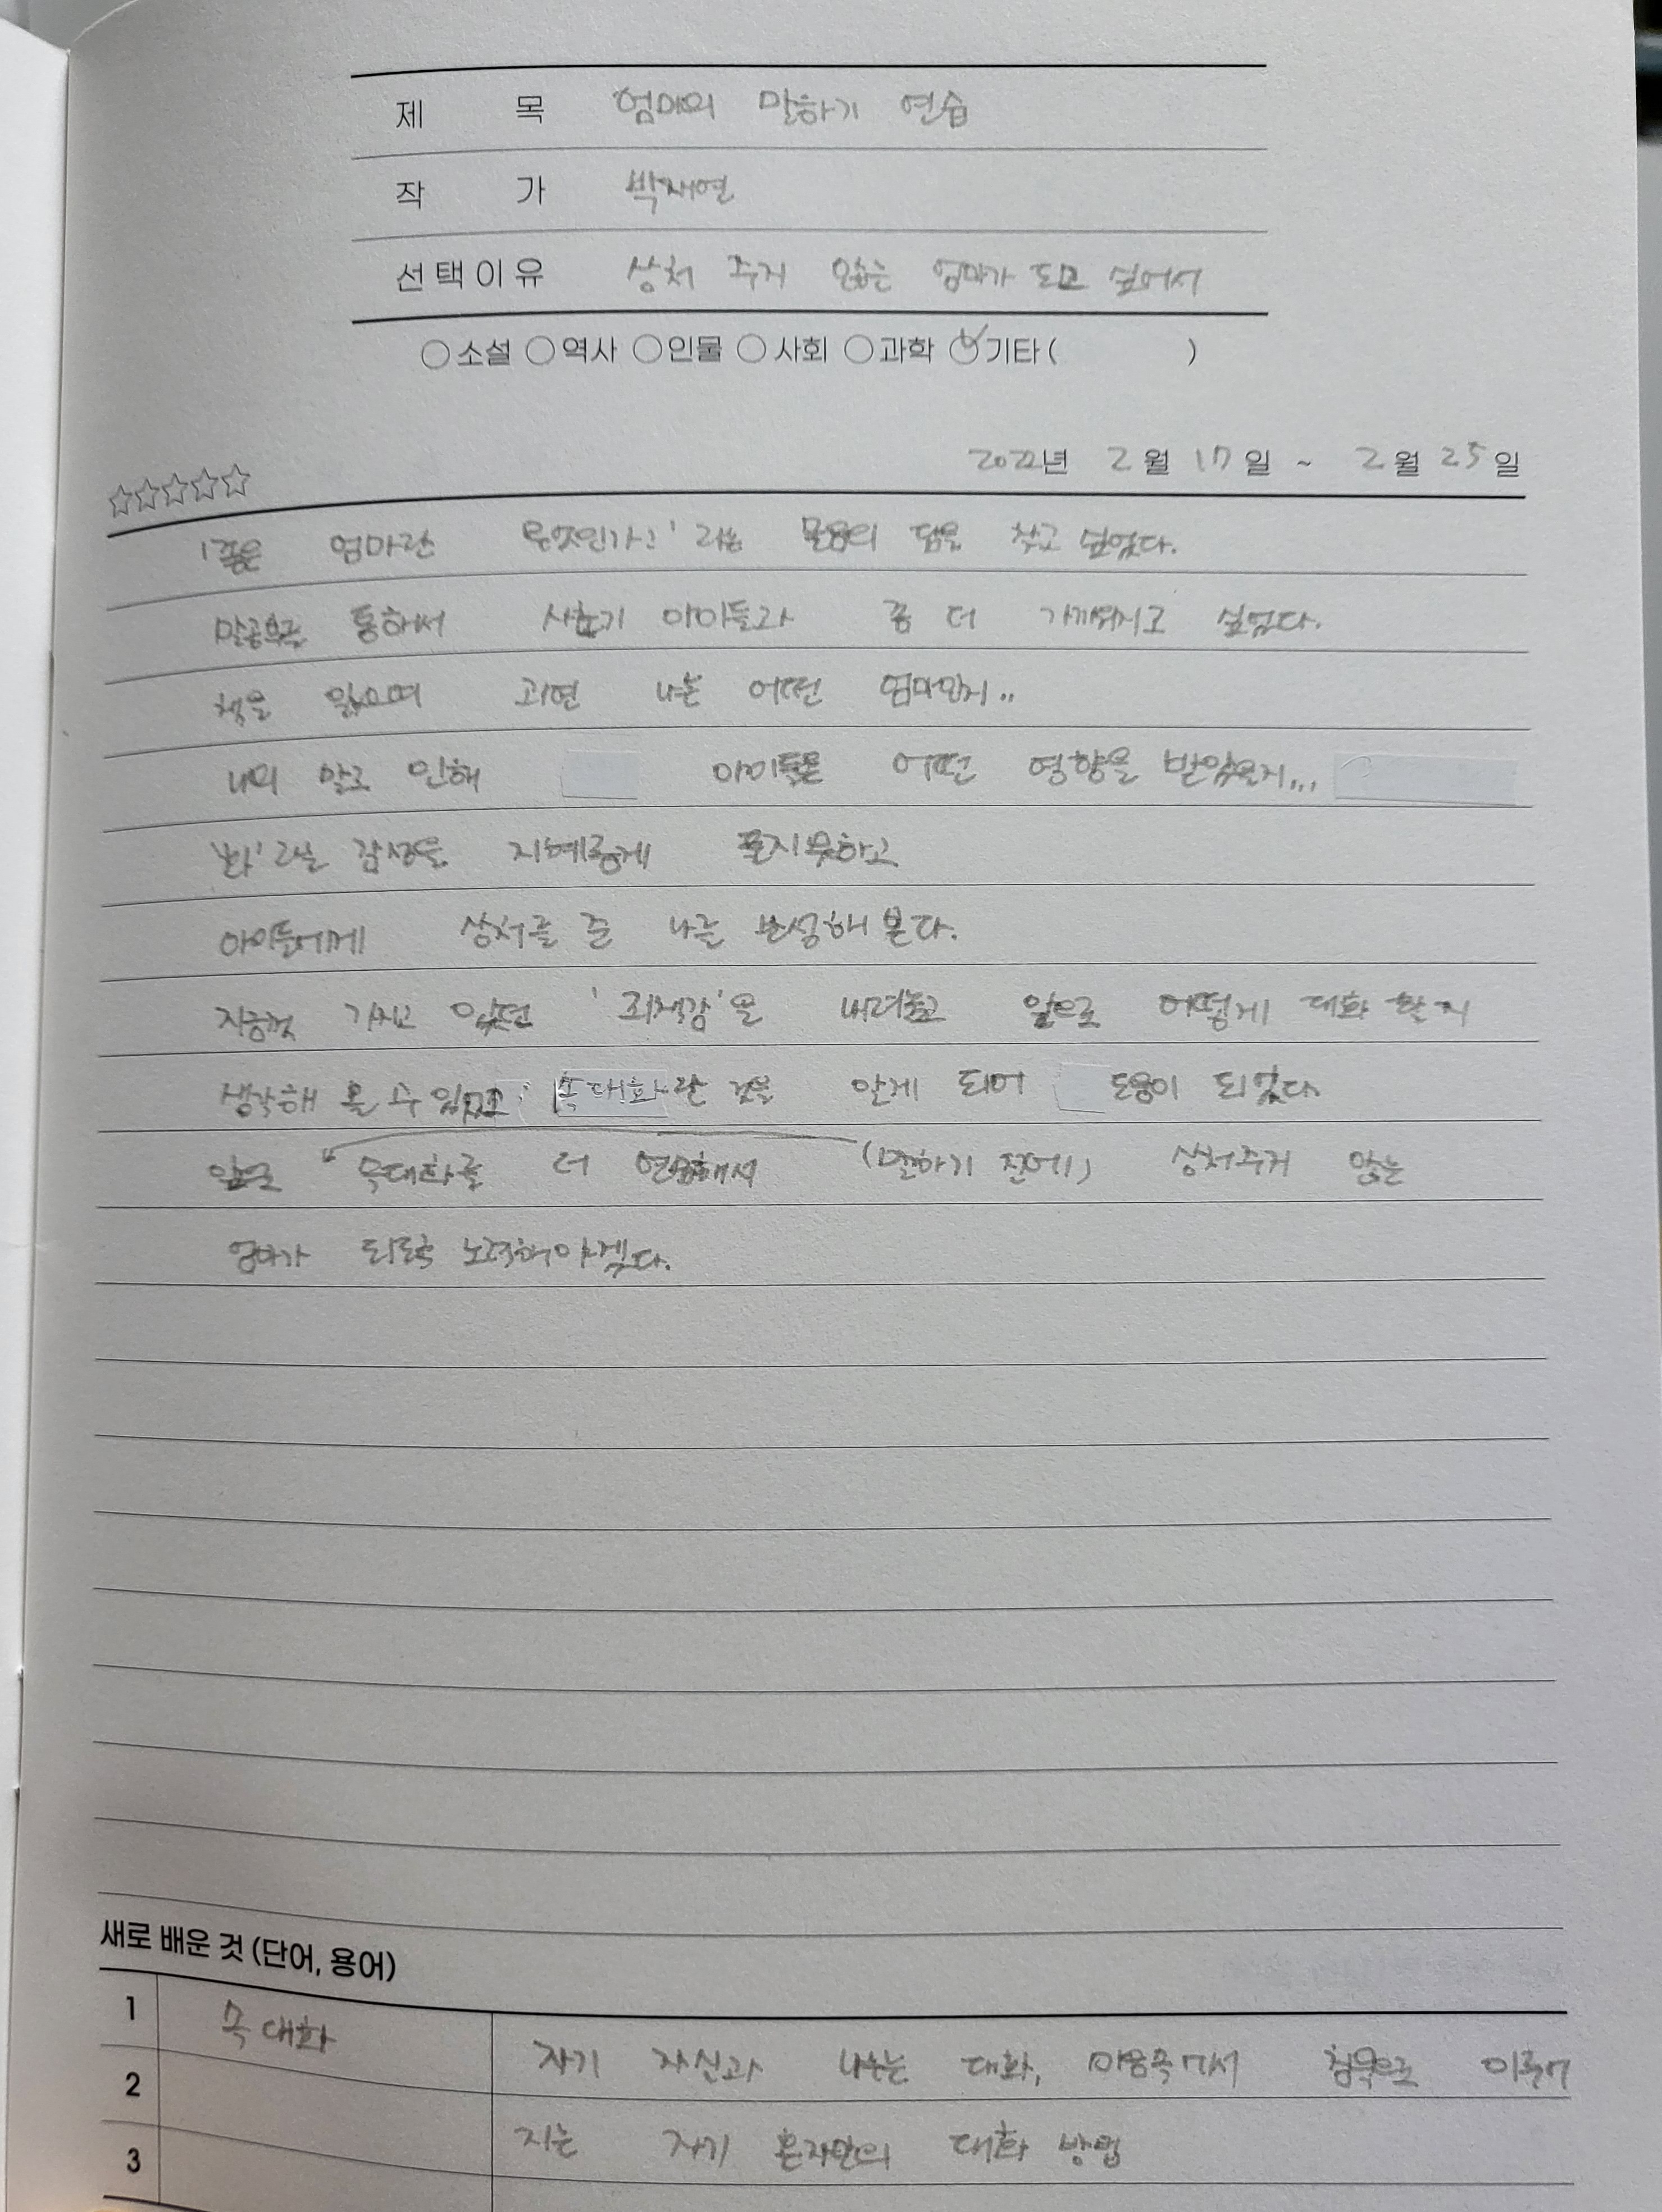 제 목 엄마의 말하기 연습
작 가 박재연
선택이유 상처 주지 않는 엄마가 되고 싶어서
소설 역사 인물 사회 과학 기타( )
2022년 2월 17일 ~ 2월 25일
'좋은 엄마란 무엇인가?' 라는 물음의 답을 찾고 싶었다.
말공부를 통해서 사춘기 아이들과 좀 더 가까워지고 싶었다.
책을 읽으며 과연 나는 어떤 엄마인지..
나의 말로 인해 아이들은 어떤 영향을 받았을지...
'화'라는 감정을 지혜롭게 풀지못하고
아이들에게 상처를 준 나를 반성해 본다.
지금껏 가지고 있던 '죄책감'을 내려놓고 앞으로 어떻게 대화 할지
생각해 볼 수 있었고 '속대화'란 것을 알게 되어 도움이 되었다.
앞으로 속대화를 더 연습해서 (말하기 전에) 상처주지 않는
엄마가 되도록 노력해야겠다.
새로 배운 것 (단어, 용어)
1 속대화 자기 자신과 나누는 대화, 마음속에서 침묵으로 이루어
2 지는 자기 혼자만의 대화 방법
3